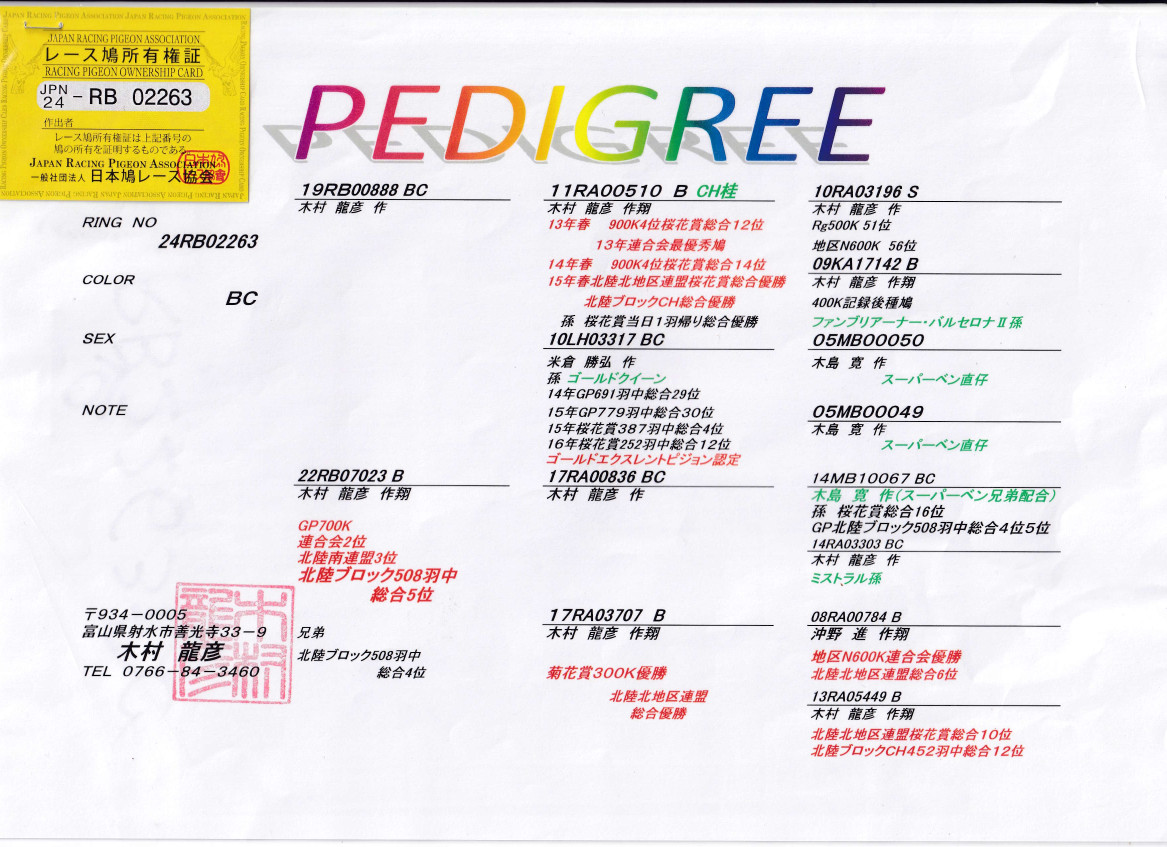 JAPAN RACING PIGEON ASSOCIATION
レース鳩所有権証
RACING PIGEON OWNERSHIP CARD
JPN
24 - RB 02263
作出者
レース鳩所有権証は上記番号の
鳩の所有を証明するものである
JAPAN RACING PIGEON ASSOCIATION
一般社団法人 日本鳩レース協会
PEDIGREE
RING NO
24RB02263
COLOR
BC
SEX
NOTE
〒934-0005
富山県射水市善光寺33-9
木村 龍彦
TEL 0766-84-3460
19RB00888 BC
木村 龍彦 作
22RB07023 B
木村 龍彦 作翔
GP700K
連合会2位
北陸南連盟3位
北陸ブロック508羽中
総合5位
兄弟
北陸ブロック508羽中
総合4位
11RA00510 B CH桂
木村 龍彦 作翔
13年春 900K4位桜花賞総合12位
13年連合会最優秀鳩
14年春 900K4位桜花賞総合14位
15年春北陸北地区連盟桜花賞総合優勝
北陸ブロックCH総合優勝
孫 桜花賞当日1羽帰り総合優勝
10LH03317 BC
米倉 勝弘 作
孫 ゴールドクイーン
14年GP691羽中総合29位
15年GP779羽中総合30位
15年桜花賞387羽中総合4位
16年桜花賞252羽中総合12位
ゴールドエクスレントピジョン認定
17RA00836 BC
木村 龍彦 作
17RA03707 B
木村 龍彦 作翔
菊花賞300K優勝
北陸北地区連盟
総合優勝
10RA03196 S
木村 龍彦 作
Rg500K 51位
地区N600K 56位
09KA17142 B
木村 龍彦 作翔
400K記録後種鳩
ファンブリアーナー・バルセロナⅡ孫
05MB00050
木島 寛 作
スーパーベン直仔
05MB00049
木島 寛 作
スーパーベン直仔
14MB10067 BC
木島 寛 作(スーパーベン兄弟配合)
孫 桜花賞総合16位
GP北陸ブロック508羽中総合4位5位
14RA03303 BC
木村 龍彦 作
ミストラル孫
08RA00784 B
沖野 進 作翔
地区N600K連合会優勝
北陸北地区連盟総合6位
13RA05449 B
木村 龍彦 作翔
北陸北地区連盟桜花賞総合10位
北陸ブロックCH452羽中総合12位